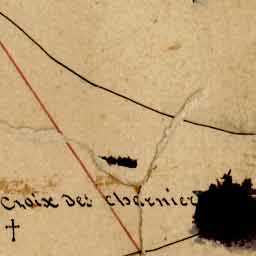 Croix Des Charnier